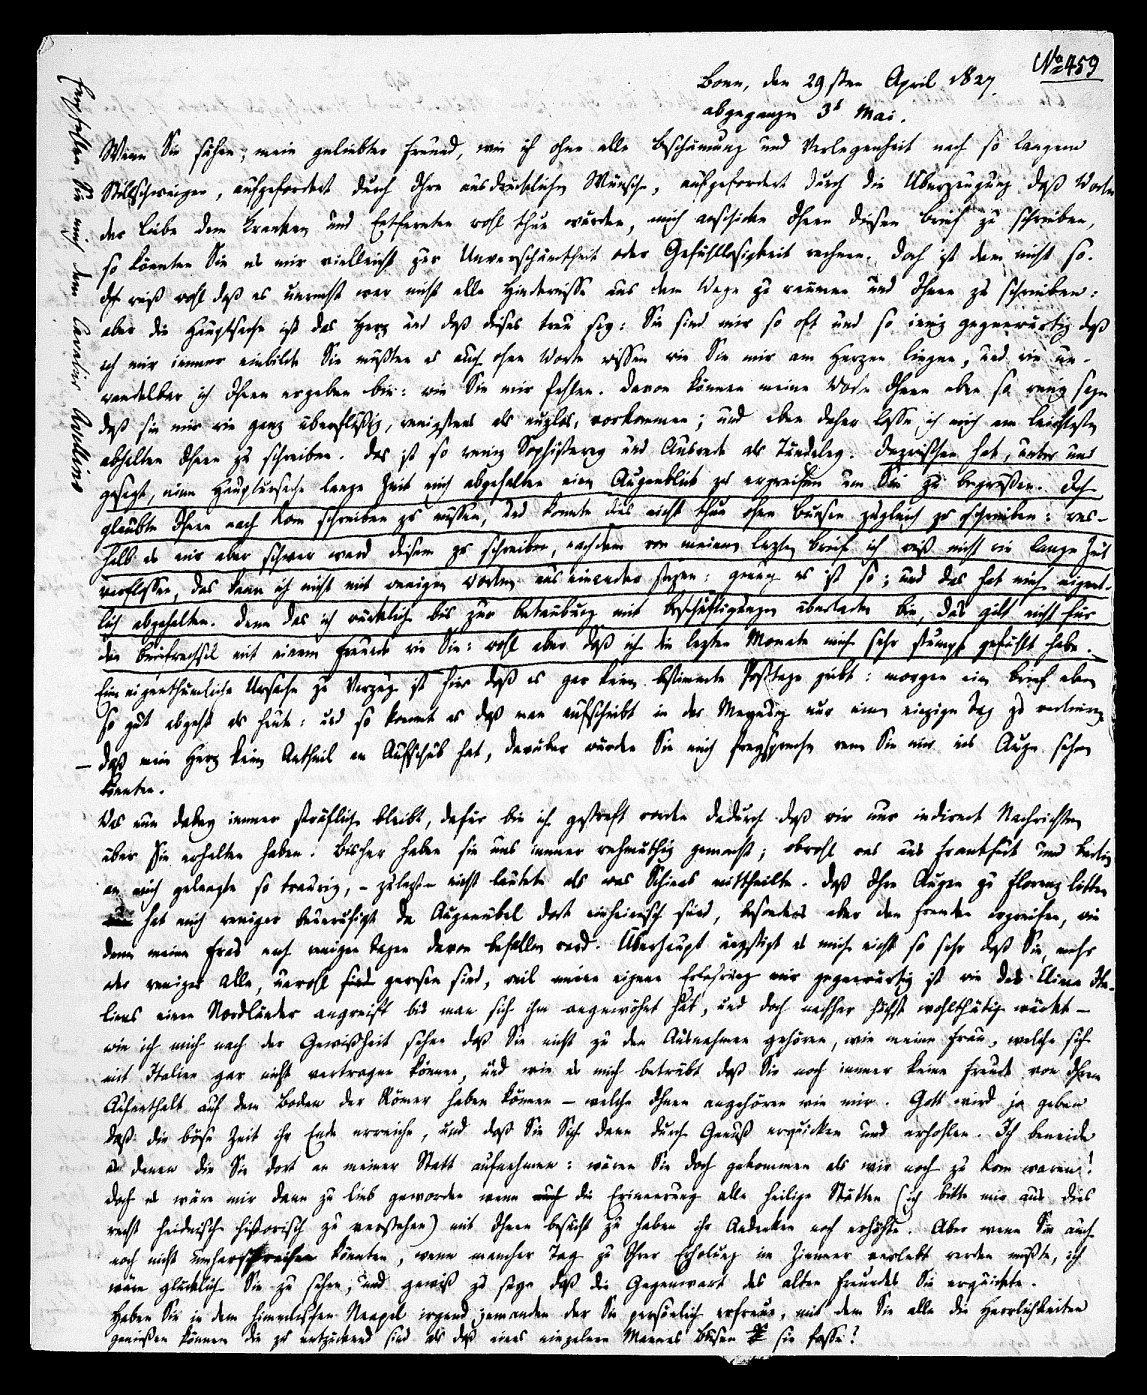 No 459
Bonn, den 29sten April 1827.
abgegangen 3t Mai.
Wenn Sie sähen, mein geliebter Freund, wie ich ohne alle Beschämung und Verlegenheit nach so langem
Stillschweigen, aufgefordert durch Ihre ausdrücklichen Wünsche, aufgefordert durch die Überzeugung daß Worte
der Liebe dem Kranken und Entfernten wohl thun würden, mich anschicke Ihnen diesen Brief zu schreiben,
so könnten Sie es mir vielleicht zur Unverschämtheit oder Gefühllosigkeit rechnen. Doch ist dem nicht so.
Ich weiß wohl daß es unrecht war nicht alle Hindernisse aus dem Wege zu räumen und Ihnen zu schreiben:
aber die Hauptsache ist das Herz und daß dieses treu sey: Sie sind mir so oft und so innig gegenwärtig daß
ich mir immer einbilde Sie müßten es auch ohne Worte wissen wie Sie mir am Herzen liegen, und wie un-
wandelbar ich Ihnen ergeben bin: wie Sie mir fehlen. Davon können meine Worte Ihnen eben so wenig sagen
daß sie mir wie ganz überflüßig, wenigstens als nuzlos, vorkommen; und eben daher lasse ich mich am leichtesten
abhalten Ihnen zu schreiben. Das ist so wenig Sophisterey und Ausrede als Tändeley. Inzwischen hat, unter uns
gesagt, eine Hauptursache lange Zeit mich abgehalten einen Augenblick zu ergreifen um Sie zu begrüßen. Ich
glaubte Ihnen nach Rom schreiben zu müssen, und konnte dies nicht thun ohne Bunsen zugleich zu schreiben: wes-
halb es mir aber schwer ward diesem zu schreiben, nachdem von meinem lezten Brief ich weiß nicht wie lange Zeit
verflossen, das kann ich nicht mit wenigen Worten auseinander sezen: genug es ist so; und das hat mich eigent-
lich abgehalten. Denn das ich wirklich bis zur Betäubung mit Beschäftigungen überladen bin, das gilt nicht für
den Briefwechsel mit einem Freunde wie Sie: wohl aber daß ich die lezten Monate mich sehr stumpf gefühlt habe.
Eine eigenthümliche Ursache zu Verzug ist hier daß es gar keine bestimmte Posttage giebt: morgen ein Brief eben
so gut abgeht als heute: und so kommt es daß man aufschiebt in der Meynung nur einen einzigen Tag zu verlieren
– daß mein Herz kein Antheil am Aufschub hat, darüber würden Sie mich freysprechen wenn Sie mir ins Auge sehen
könnten.
Was nun dabey immer sträflich bleibt, dafür bin ich gestraft worden dadurch daß wir nur indirect Nachrichten
über Sie erhalten haben. Bisher haben sie uns immer wehmüthig gemacht; obwohl was aus Frankfurt und Berlin
an mich gelangte so traurig, – zulezt – nicht lautete als was Schinas mittheilte. Daß Ihre Augen zu Florenz litten
hat mich weniger beunruhigt da Augenübel dort einheimisch sind, besonders aber den Fremden ergreifen, wie
denn meine Frau nach wenigen Tagen davon befallen ward. Überhaupt ängstigt es mich nicht so sehr daß Sie, mehr
oder weniger Alle, unwohl gewesen sind, weil meine eigene Erfahrung mir gegenwärtig ist wie das Clima Ita-
liens einen Nordländer angreift bis man sich ihm angewöhnt hat, und doch nachher höchst wohlthätig würket –
wie ich mich nach der Gewißheit sehne daß Sie nicht zu den Ausnahmen gehören, wie meine Frau, welche sich
mit Italien gar nicht vertragen können, und wie es mich betrübt daß Sie noch immer keine Freude von Ihrem
Aufenthalt auf dem Boden der Römer haben können – welche Ihnen angehören wie mir. Gott wird ja geben
daß die böse Zeit ihr Ende erreiche, und daß Sie Sich dann durch Genuß erquicken und erhohlen. Ich beneide
es denen die Sie dort an meiner Statt aufnehmen: wären Sie doch gekommen als wir noch zu Rom waren!
doch es wäre mir dann zu lieb geworden wenn die Erinnerung alle heilige Stätten (ich bitte mir aus dies
recht heidnisch historisch zu verstehen) mit Ihnen besucht zu haben ihr Andenken noch erhöhte. Aber wenn Sie auch
noch nicht umherschweifen könnten, wenn mancher Tag zu Ihrer Erholung im Zimmer verlebt werden müßte, ich
wäre glücklich Sie zu sehen, und gewiß zu seyn daß die Gegenwart des alten Freundes Sie erquickte.
Haben Sie in dem himmlischen Neapel irgend jemanden der Sie persönlich erfreue, mit dem Sie alle die Herrlichkeiten
genießen können die zu entzückend sind als daß eines einzelnen Mannes Busen sie fasse?
Empfehlen Sie mich dem Cavalier Avellino